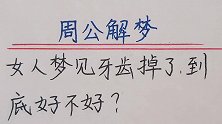 周公解梦
女人梦见牙齿掉了.到
底好不好?